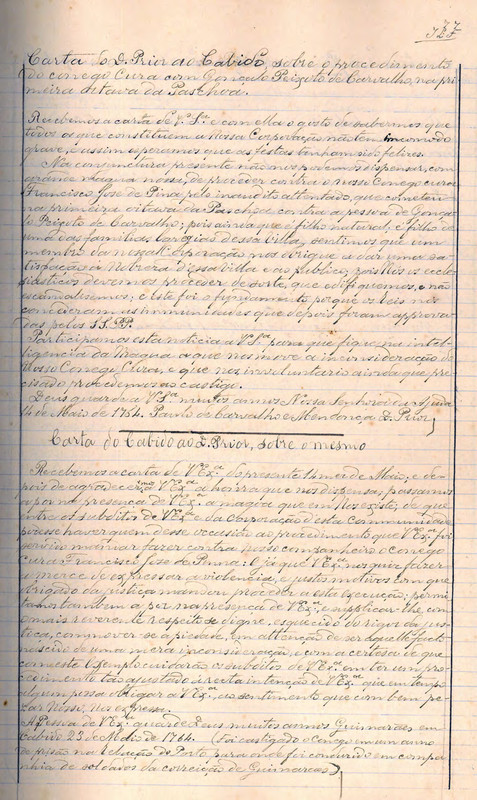 Carta do D. Prior ao Cabido, sobre o procedimento
do conego Cura com Gonçalo Peixoto de Carvalho, na pri
meira oitava da Paschoa.
Recebemos a carta de Vª Sª e com ella o gosto de sabermos que
todos os que constituem a Nossa Corporação não tem incommodo
grave, e assim esperamos que as festas tenham sido felizes.
Na conjunctura presente não nos podemos dispensar, com
grande magoa nossa, de proceder contra o nosso Conego cura
Francisco Jose de Pina, pelo inaudito attentado, que cometteu
na primeira oitava da Paschoa contra a pessoa de Gonça
lo Peixoto de Carvalho; pois ainda que é filho natural, é filho de
uma das familias egregias dessa villa, sentimos que um
membro da nossa Corporação nos obrigue a dar uma sa
tisfação á Nobreza d'essa villa e ao publico, pois Nós os eccle
siasticos devemos proceder de sorte, que edifiquemos, e não
escandalisemos; e este foi o fundamento porque os leis nos
concederam as immunidades que depois foram approva
das pelos SS. PP.
Participamos esta noticia a Vª Sª para que fique na intel
ligencia da magua a que nos move a inconsideração do
Nosso Conego Cura, e que nos é involuntario ainda que pre
cisado procedermos ao castigo.
Deus guarde a Vª Sª muitos annos Nossa Senhora da Ajuda
14 de Maio de 1764. Paulo de Carvalho e Mendonça D. Prior,
Carta do Cabido ao D. Prior, sobre o mesmo
Recebemos a carta de V Exª do presente 14 mez de Maio, e de
pois de agradecer a V Exª a honra que nos dispensa, passamos
a por na presença de V Exª a magua que em Nos existe, de que
entre os subditos de V Exª e da Corporação d'esta Communidade
podesse haver quem desse occasião ao procedimento que V Exª foi
servido mandar fazer contra Nosso companheiro o Conego
Cura Francisco Jose de Penna: E já que V Exª nos quiz fazer
a merce de expressar a violencia, e justos motivos com que
obrigado da justiça mandou proceder a esta execução; permi
ta-nos tambem a por na presença de V Exª, e supplicar-lhe, com
o mais reverente respeito se digne, esquecido do rigor da jus
tiça, commover-se á piedade, em attenção de ser aquelle facto
nascido de uma mera inconsideração, e com a certeza de que
com este exemplo cuidarão os subditos de V Exª em ter um pro
cedimento tão ajustado á recta intenção de V Exª, que em tempo
algum possa obrigar a V Exª, ao sentimento que com bem pe
zar Nosso, nos expressa.
A Pessoa de V Exª guarde Deus muitos annos Guimarães em
Cabido 23 de Maio de 1764. (Foi castigado o Conego em um anno
de prisão na relação do Porto para onde foi conduzido em compa
nhia de soldados da correição de Guimarães)